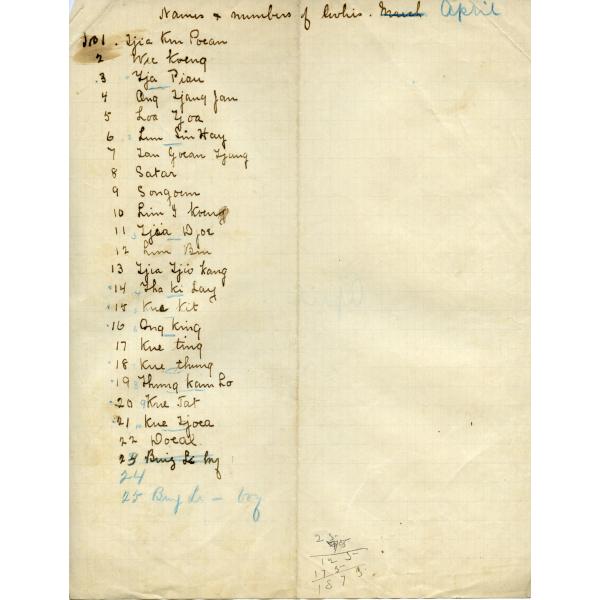 Names & numbers of Coolies. March April
No 1. Tjia Km Poean
2 Wee Koeng
3 Tja Pian
4 Ong Tjang Jan
5 Loa Tjoa
6 Lim Sin Hay
7 Tan Goean Tjang
8 Satar
9 Songoem
10 Lim I Koeng
11 Tjia Djoe
12 Lim Bin
13 Tjia Tjio Kang
14 Tha Ki Lay
15 Kue Kit
16 Ong King
17 Kue ting
18 Kue thung
19 Thung Kam Lo
20 Kue Jat
21 Kue Tjoea
22 Doeal
23 boy
24
25 boy
125
175
1875